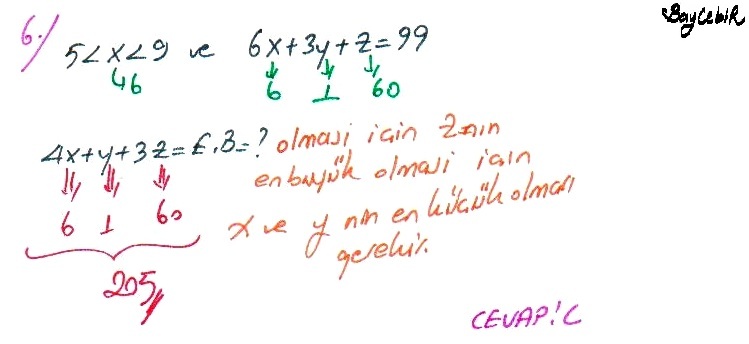 BayCebiR
6.) 5<x<9 ve 6x+3y+z=99
46 6 1 60
4x+y+3z=E.B=? olması için Z nın
en büyük olması için
6 1 60 x ve y nin en küçük olması
gerekir.
205
CEVAP: C